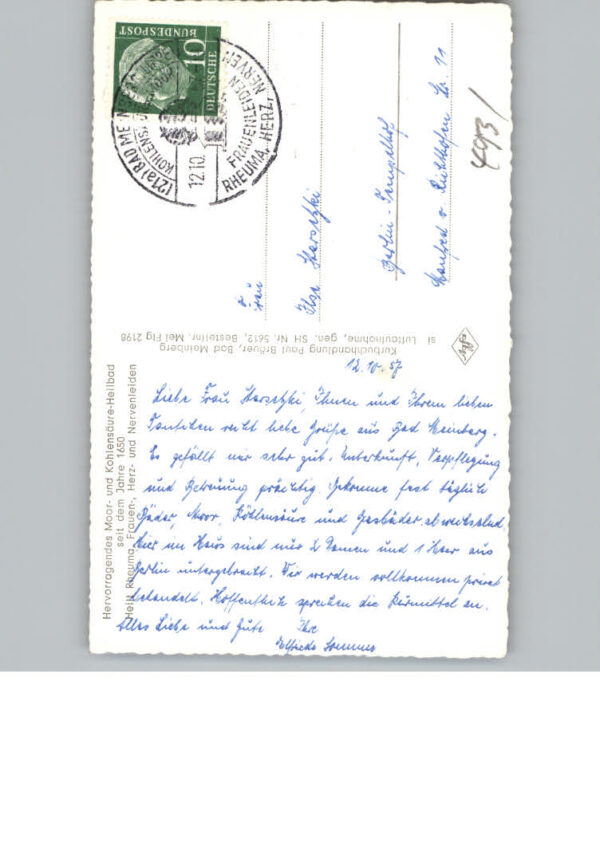 DEUTSCHE
BUNDESPOST
10
(21a) BAD MEINBERG
12.10.
FRAUENLEIDEN
RHEUMA, HERZ, NERVEN
Frau
Ilse Starsetzki
Berlin-Tempelhof
Manfred v. Richthofen Str. 11
493/
Agfa
Kurbuchhandlung Paul Bräuer, Bad Meinberg
si Luftaufnahme, gen. SH Nr. 5612, Bestellnr. Mei Flg 2198
Hervorragendes Moor- und Kohlensäure-Heilbad
seit dem Jahre 1650
Heilt Rheuma, Frauen-, Herz- und Nervenleiden
12.10.57
Liebe Frau Starsetzki, Ihnen und Ihrem lieben
recht liebe Grüße aus Bad Meinberg.
Es gefällt mir sehr gut. Unterkunft, Verpflegung
und Betreuung prächtig. Bekomme fast täglich
Bäder, Moor, Kohlensäure und Gasbäder abwechselnd.
Hier im Haus sind nur 2 Damen und 1 Herr aus
Berlin untergebracht. Wir werden vollkommen privat
behandelt. Hoffentlich sprechen die Kurmittel an.
Alles Liebe und Gute Ihre
Elfriede Sommer